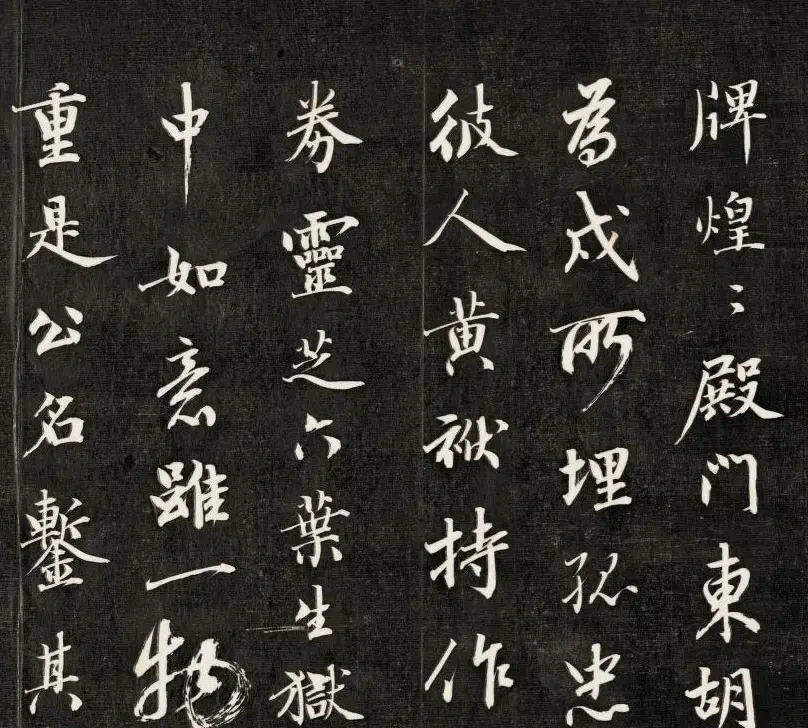 牌煌〻殿門東胡
為戍所埋孤忠
彼人黄袱持作
券靈芝六葉生獄
中如意雖一物
重是公名鏨其